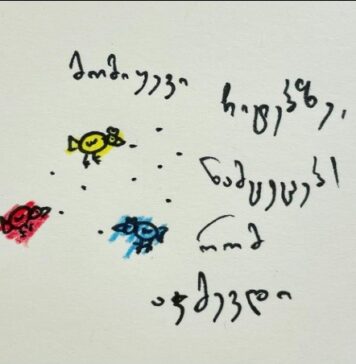 მომიყევი
ჩიტებზე,
ნამცეცებს
რომ
აჭმევდი